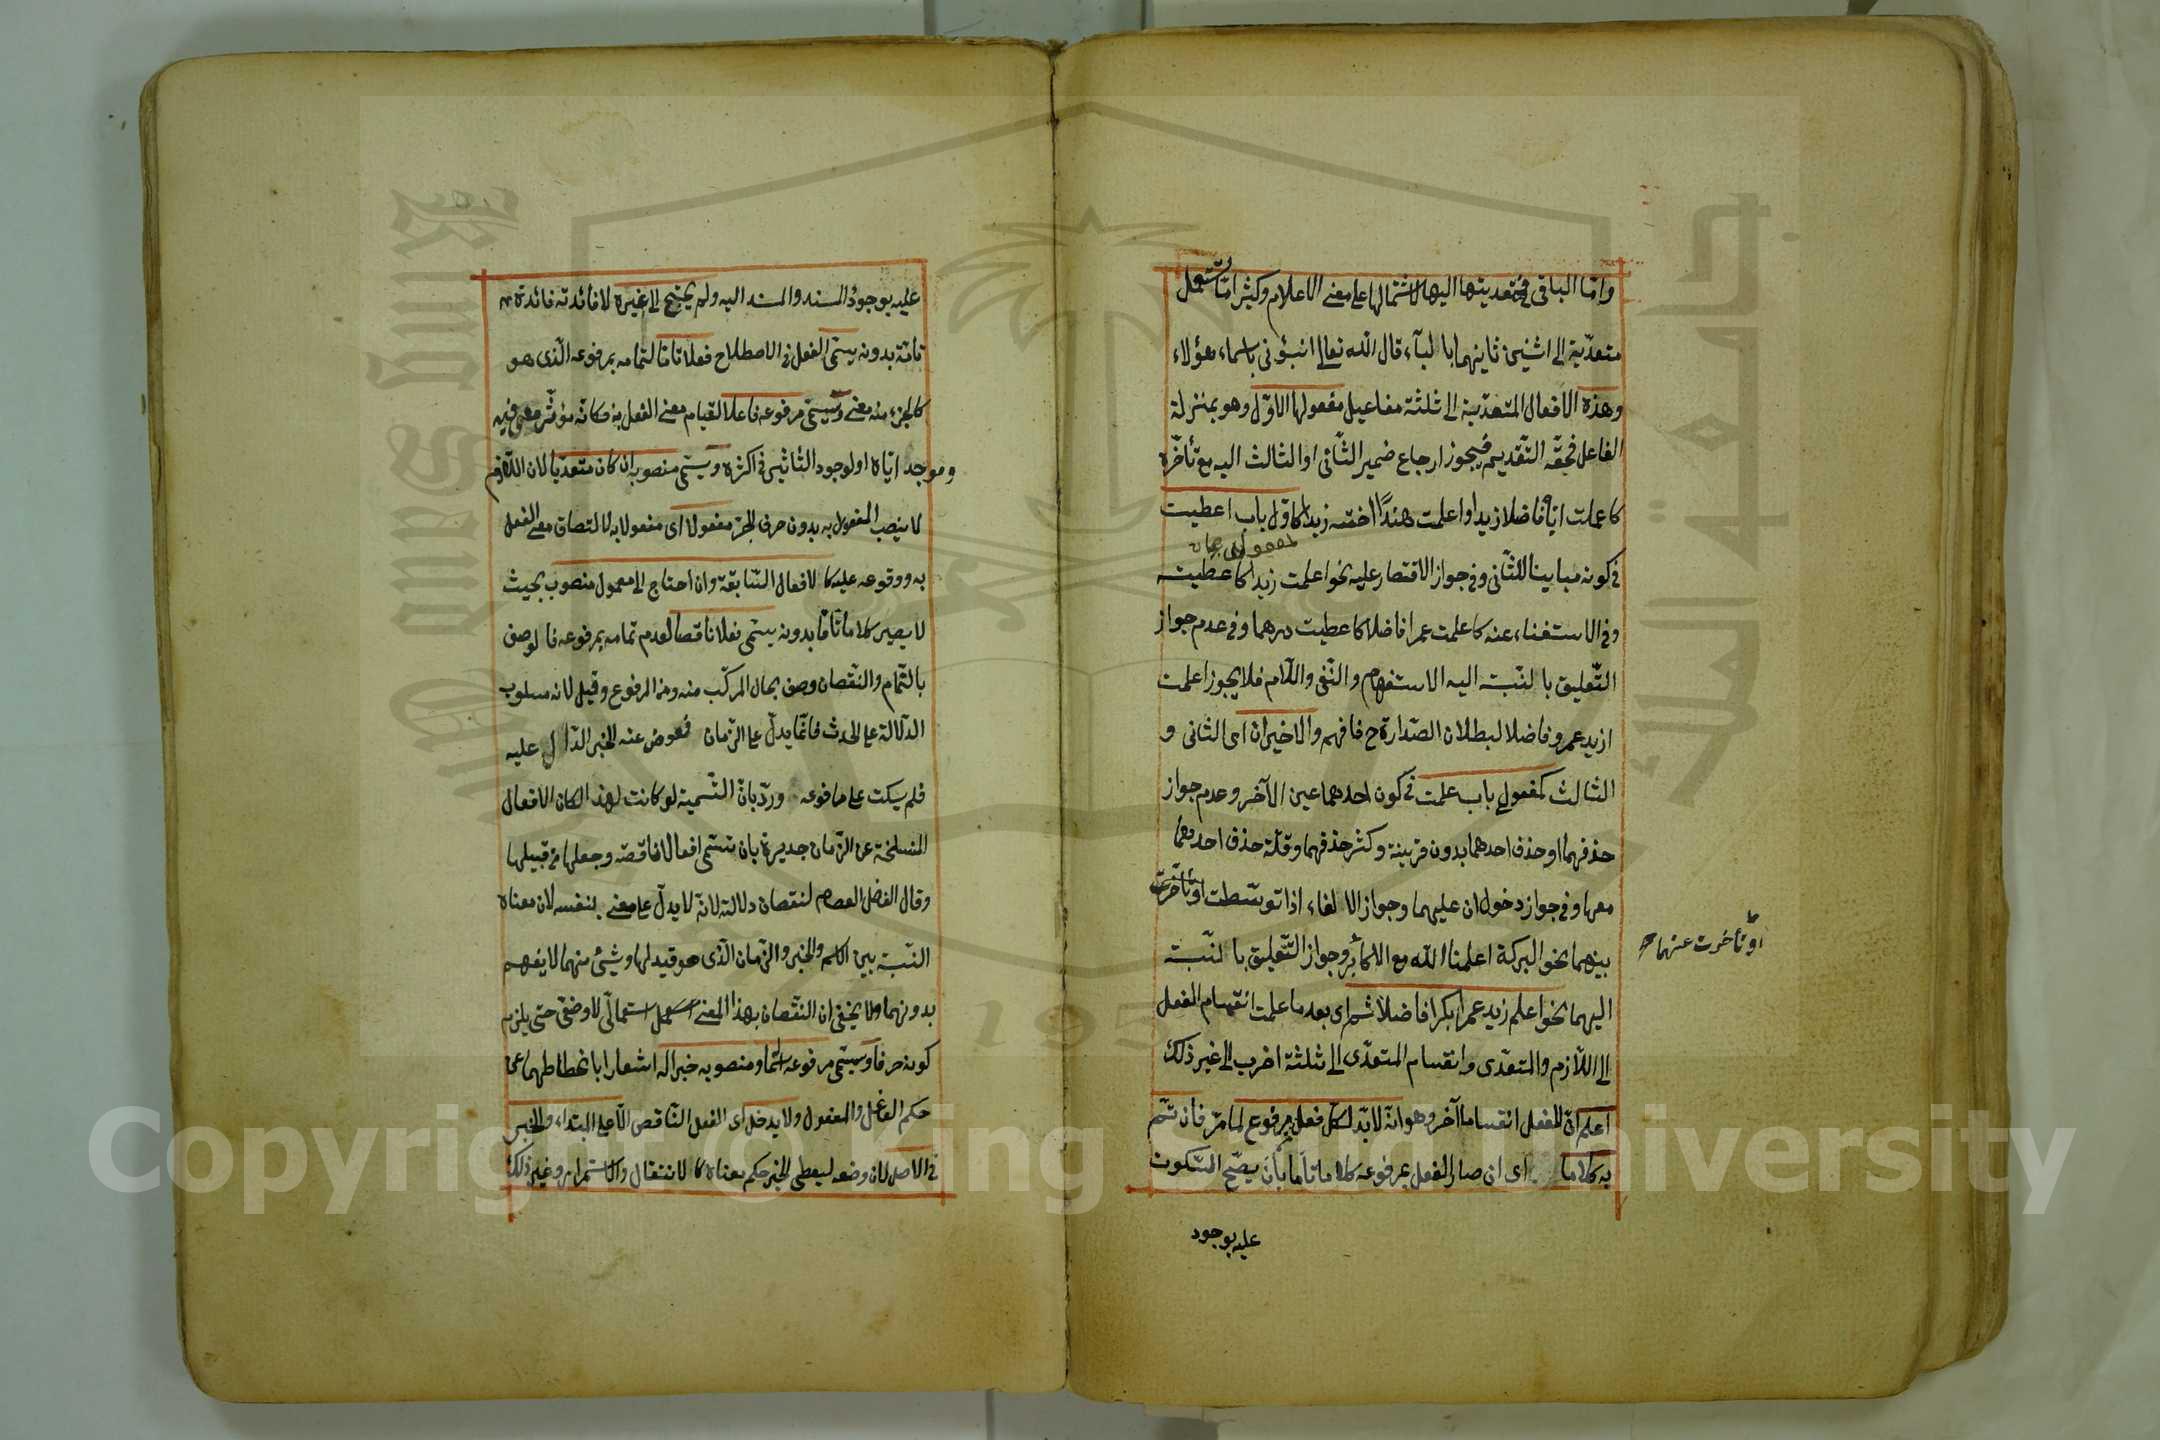 واما الباقى فمتعديتها اليها لاشتمالها على معنى الاعلام وكثيرا ما تستعمل
متعدّية الى اثنين ثانيهما بالباء، قال الله تعالى انبؤنى باسماء هؤلاء
وهذه الافعال المتعدّية الى ثلثة مفاعيل مفعولها الاوّل وهو بمنزلة
الفاعل فحقّه التّقديم فيجوز ارجاع ضمير الثّانى او الثالث اليه مع تأخّره
كاعلمت اياه فاضلا زيدا واعلمت هندًا اخته زيدا كاوّل باب اعطيت
مفعولى
فى كونه مباينا للثّانى وفى جواز الاقتصار عليه نحو اعلمت زيدا كاعطيته
وفى الاستغناء عنه كاعلمت عمرا فاضلا كاعطيت درهما وفى عدم جواز
التّعليق بالنّسبة اليه الاستفهام والنّفى واللّام فلا يجوز اعلمت
ازيد عمرو فاضلا لبطلان الصّدارة ح فافهم والاخيران اى الثانى و
الثالث كمفعولى باب علمت فى كون احدهما عين الآخر وعدم جواز
حذفهما او حذف احدهما بدون قرينة وكثر حذفهما وقلّة حذف احدهما
معها وفى جواز دخول ان عليهما وجواز الالغاء، اذا توسّطت او تأخّرت
او تأخرت عنهما صح
بينهما نحو البركة اعلمنا الله مع الاكابر وجواز التّعليق بالنّسبة
اليهما نحو اعلم زيد عمرا بكرا فاضلا ثم اى بعد ما علمت انقسام الفعل
الى اللّازم والمتعدّى وانقسام المتعدّى الى ثلثة اضرب الى غير ذلك
اعلم انّ للفعل انقساما آخر وهو انّه لا بدّ لكلّ فعل مرفوع لما مرّ فان تمّ
به كلاما اى ان صار الفعل بمرفوعه كلاما تاما بأن يصّح السّكوت
عليه بوجود
عليه بوجود المسند والمسند اليه ولم يحتج الى غيره لافائدته فائدة
تامّة بدونه يسمّى الفعل فى الاصطلاح فعلا تامّا لتمامه بمرفوعه الّذى هو
كالجزء منه معنى ويسمّى مرفوعه فاعلا لقيام معنى الفعل به فكانّه مؤثّر
وموجد ايّاه او لوجود التّأثير فى اكثره ويسمّى منصوبه ان كان متعدّيا لان اللّازم
لا ينصب المفعول به بدون حرف الجرّ مفعولا اى مفعولا به لالتصاق معنى الفعل
به ووقوعه عليه كالافعال السّابقة وان احتاج الى معمول منصوب بحيث
لا يصير كلاما تامّا بدونه يسمّى فعلا ناقصا لعدم تمامه بمرفوعه فالوصف
بالتّمام والنّقصان وصف بحال المركّب منه ومن المرفوع وقيل لانه مسلوب
الدّلالة على الحدث فانّما يدلّ على الزّمان فعوض عنه الخبر الدّال عليه
فلم يسكت على مرفوعه وردّ بانّ التّسمية لو كانت لهذا لكان الافعال
المنسلخة عن الزّمان جديرة بان تسمّى افعالا ناقصة وجعلها من قبيلها
وقال الفاضل العصام لنقصان دلالته لانّه لا يدلّ على معنى بنفسه لان معناه
النّسبة بين الاسم والخبر والزّمان الّذى هو قيد لها وشىء منهما لا يفهم
بدونهما ولا يخفى ان النّقصان بهذا المعنى استعمالىّ لا وضعىّ حتى يلزم
كونه حرفا ويسمّى مرفوعه اسما ومنصوبه خبرا له اشعارا بانحطاطهما عن
حكم الفاعل والمفعول ولا يدخل اى الفعل النّاقص الّا على المبتداء والخبر
فى الاصل لان وضعه ليعطى الخبر حكم معناه كالانتقال والاستمرار وغير ذلك
Copyright © King Saud University